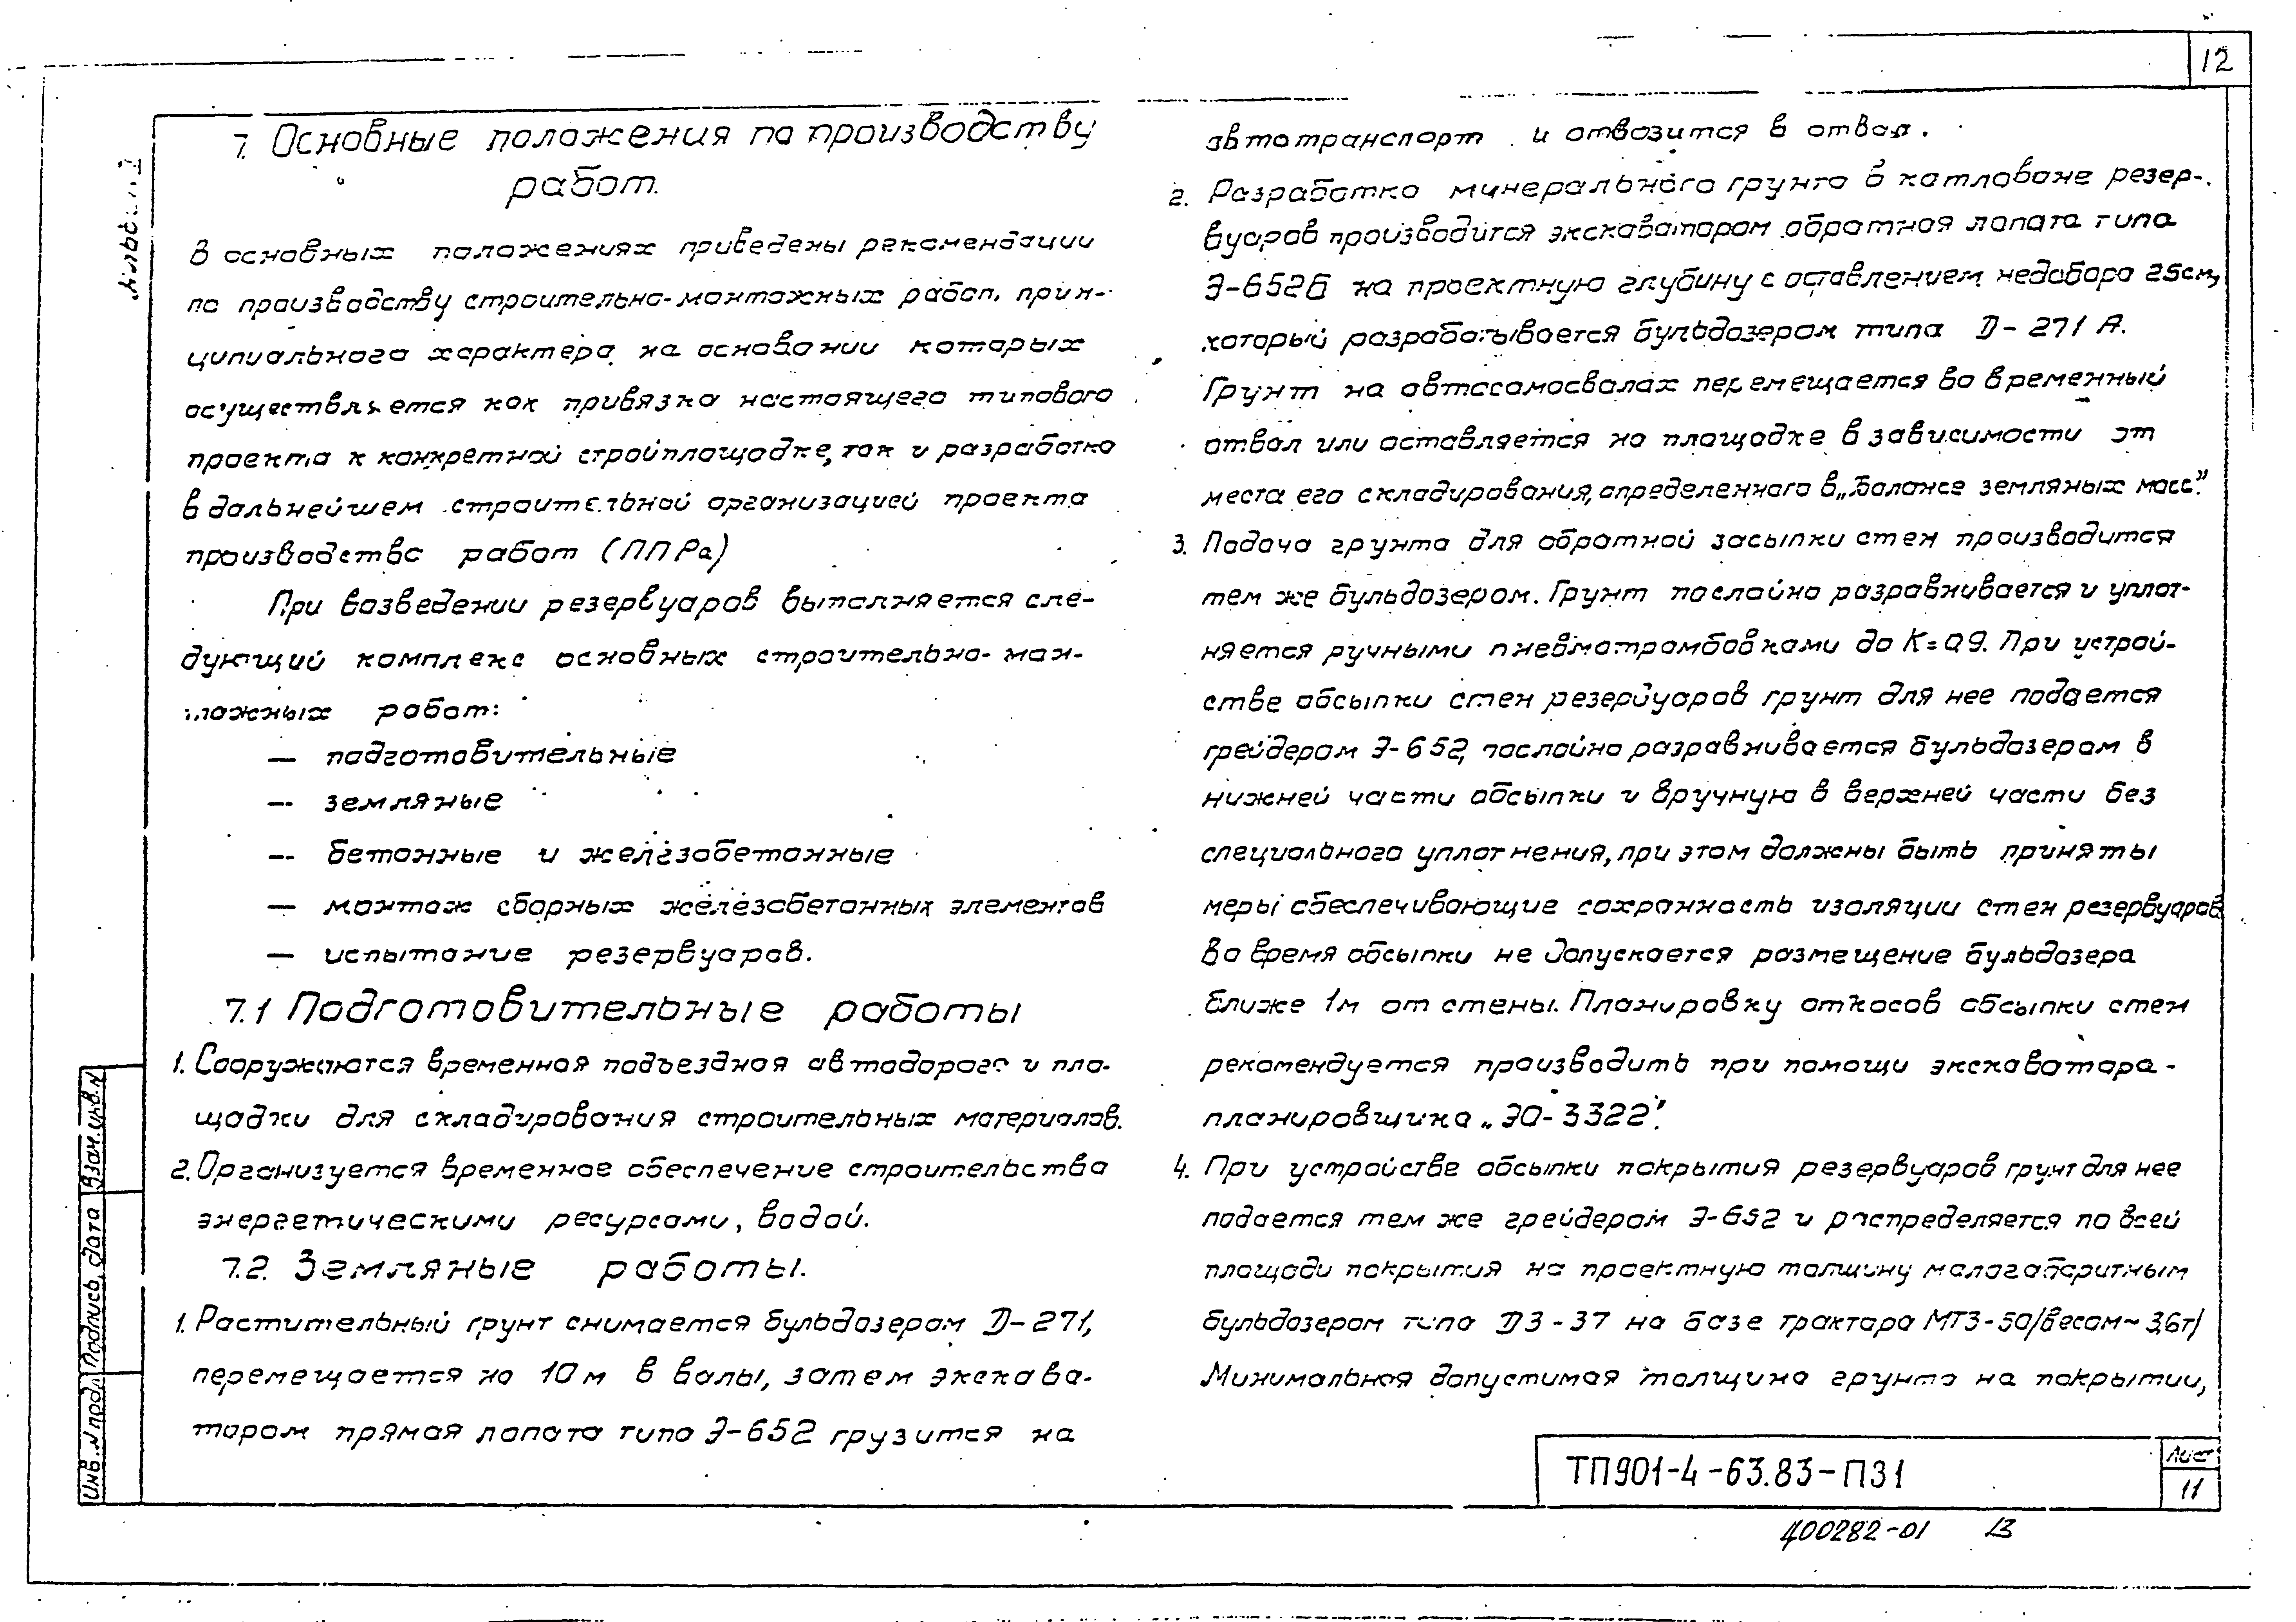 12
7. Основные положения по производству
работ.
В основных положениях приведены рекомендации
по производству строительно-монтажных работ, прин-
ципиального характера на основании которых
осуществляется как привязка настоящего типового
проекта к конкретной стройплощадке, так и разработка
в дальнейшем строительной организацией проекта
производства работ (ППРа)
При возведении резервуаров выполняется сле-
дующий комплекс основных строительно-мон-
тажных работ:
— подготовительные
— земляные
— бетонные и железобетонные
— монтаж сборных железобетонных элементов
— испытание резервуаров.
7.1 Подготовительные работы
1. Сооружаются временная подъездная автодорога и пло-
щадки для складирования строительных материалов.
2. Организуется временное обеспечение строительства
энергетическими ресурсами, водой.
7.2. Земляные работы.
1. Растительный грунт снимается бульдозером Д-271,
перемещается на 10 м в валы, затем экскава-
тором прямая лопата типа Э-652 грузится на
автотранспорт и отвозится в отвал.
2. Разработка минерального грунта в котловане резер-
вуаров производится экскаватором обратная лопата типа
Э-652Б на проектную глубину с оставлением недобора 25см,
который разрабатывается бульдозером типа Д-271 А.
Грунт на автосамосвалах перемещается во временный
отвал или оставляется на площадке в зависимости от
места его складирования, определенного в „Балансе земляных масс."
3. Подача грунта для обратной засыпки стен производится
тем же бульдозером. Грунт послойно разравнивается и уплот-
няется ручными пневмотрамбовками до К=0,9. При устрой-
стве обсыпки стен резервуаров грунт для нее подается
грейдером Э-652, послойно разравнивается бульдозером в
нижней части обсыпки и вручную в верхней части без
специального уплотнения, при этом должны быть приняты
меры обеспечивающие сохранность изоляции стен резервуаров
Во время обсыпки не допускается размещение бульдозера
ближе 1м от стены. Планировку откосов обсыпки стен
рекомендуется производить при помощи экскаватора-
планировщика „ЭО-3322".
4. При устройстве обсыпки покрытия резервуаров грунт для нее
подается тем же грейдером Э-652 и распределяется по всей
площади покрытия на проектную толщину малогабаритным
бульдозером типа ДЗ-37 на базе трактора МТЗ-50/весом~3,6т/
Минимальная допустимая толщина грунта на покрытии,
Взам.инв.N
Подпись, дата
Инв.N подл
ТП901-4-63.83-ПЗ1
Лист
11
400282-01 13